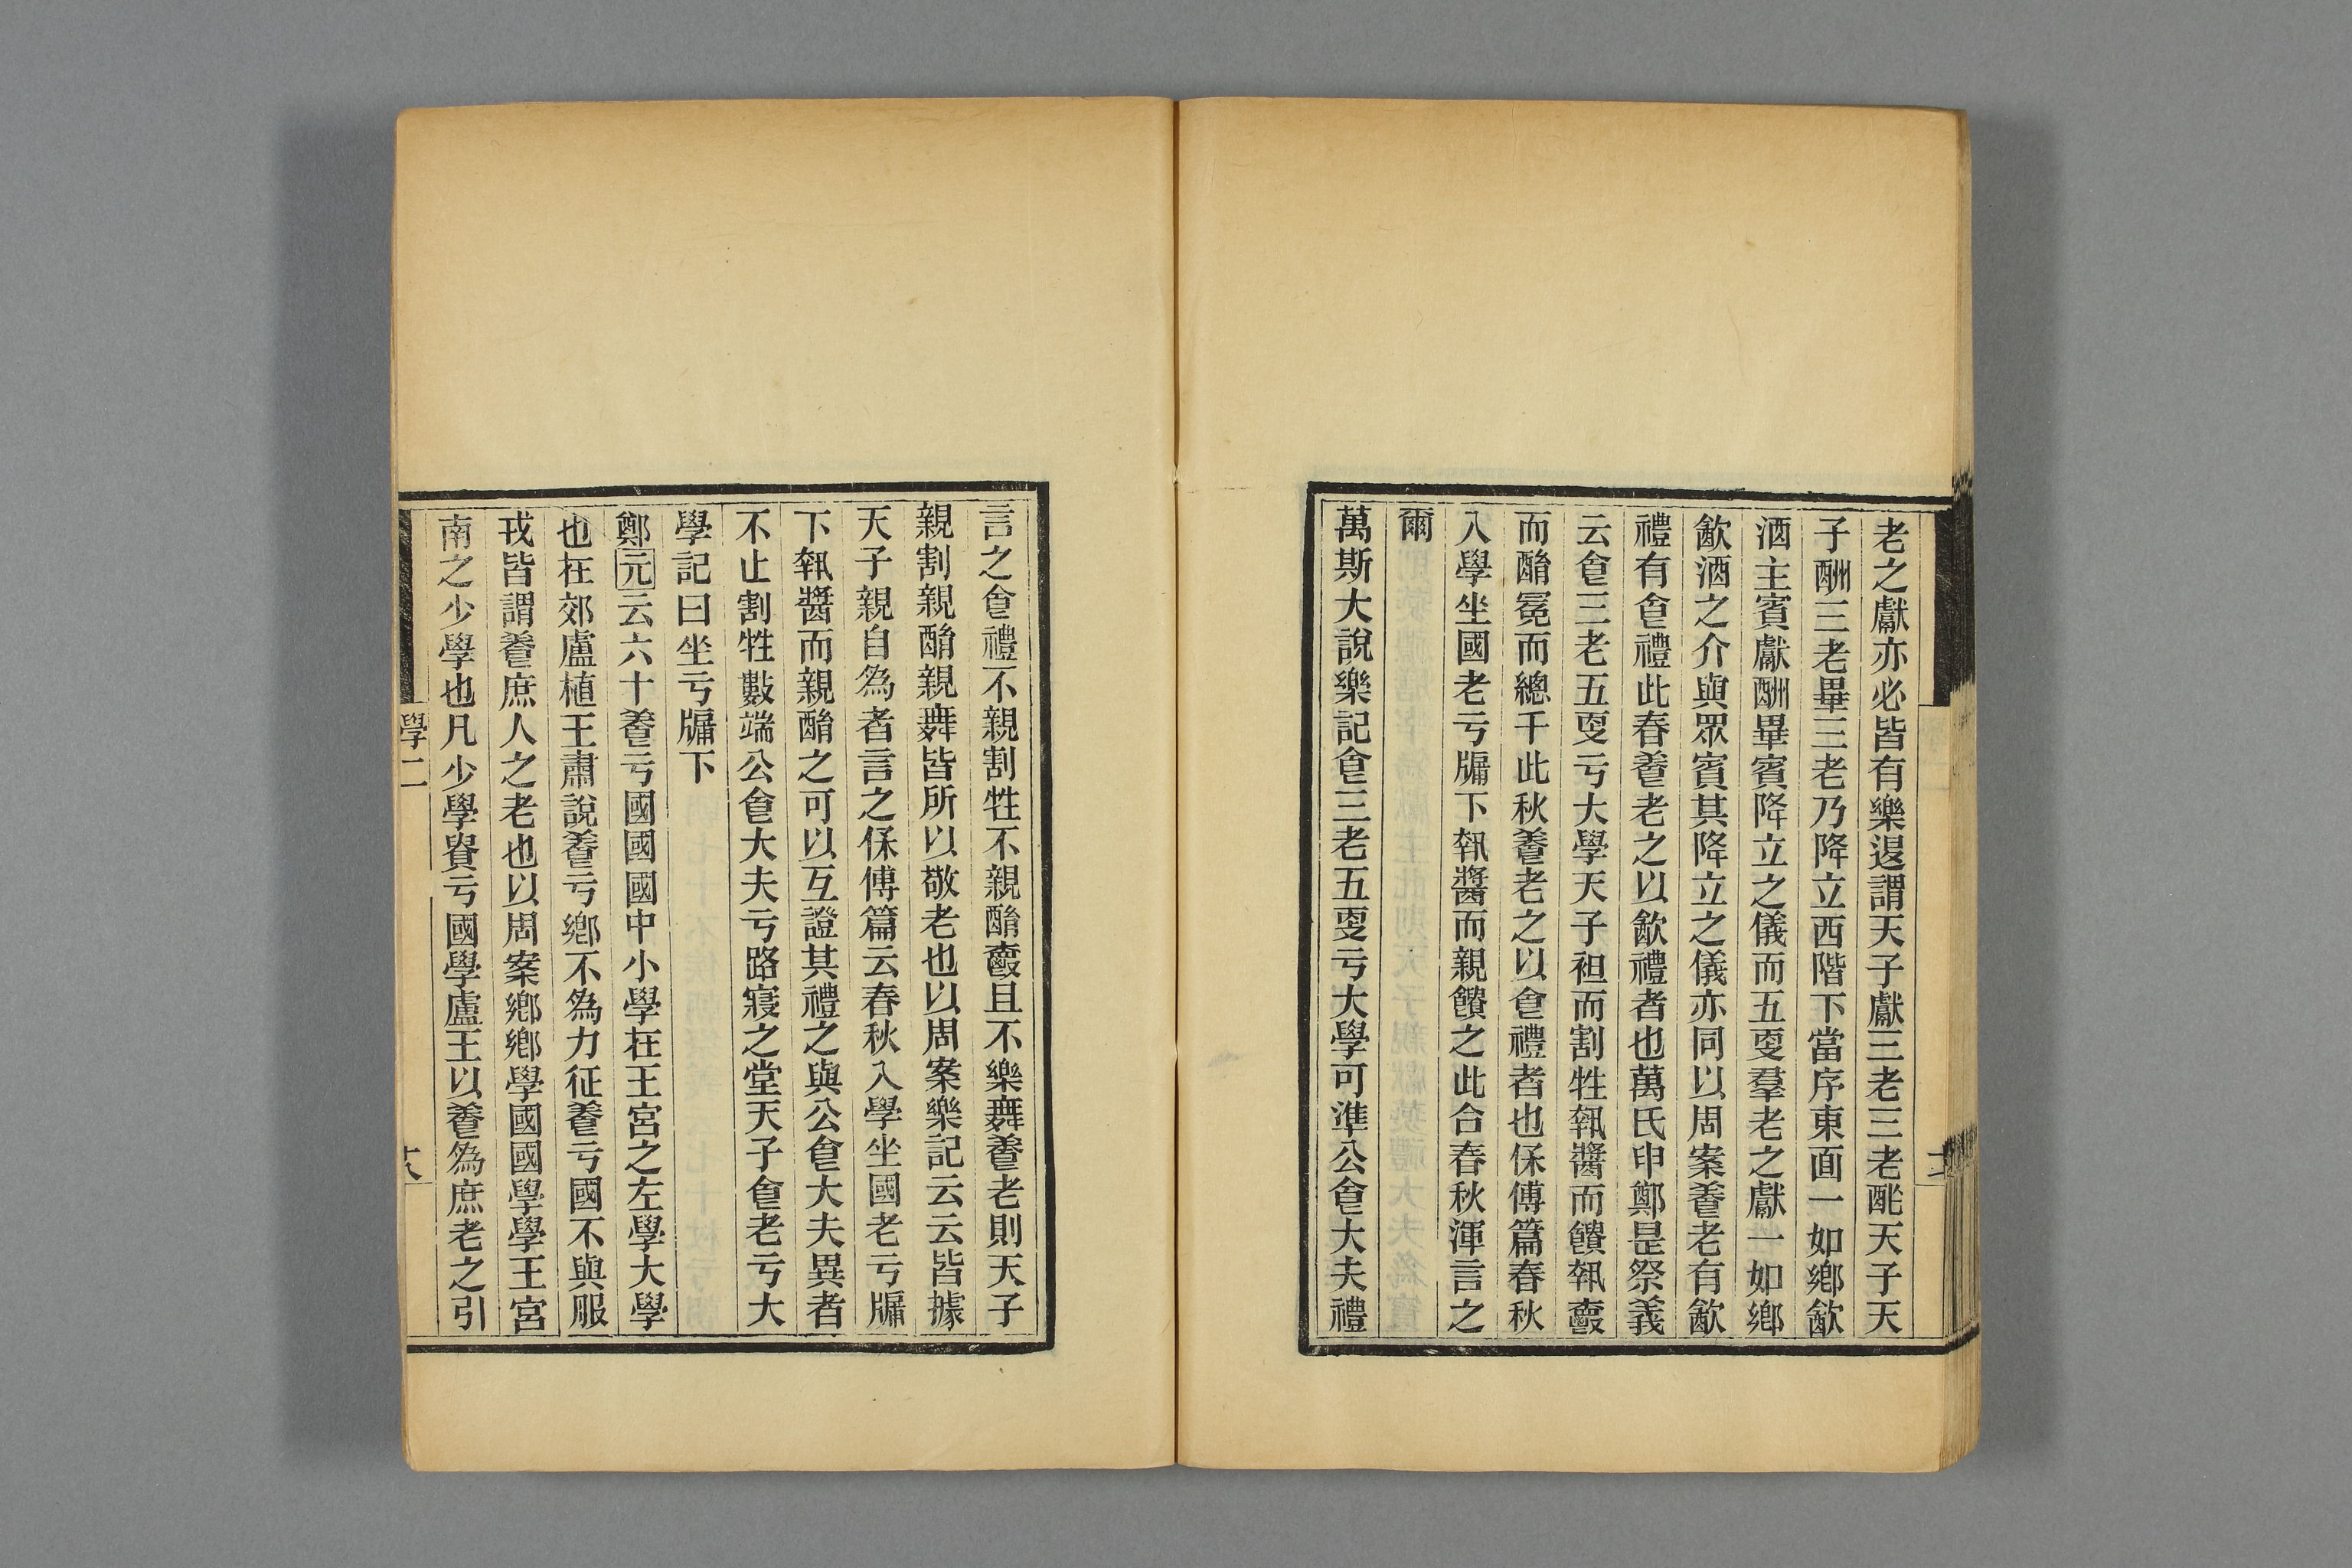 老之獻亦必皆有樂退謂天子獻三老三老酢天子天
子酬三老畢三老乃降立西階下當序東面一如鄉歙
酒主賓獻酬畢賓降立之儀而五叟羣老之獻一如鄉
歙酒之介與眾賓其降立之儀亦同以周案養老有歙
禮有食禮此春養老之以歙禮者也萬氏申鄭是祭義
云食三老五叟亏大學天子袒而割牲執醬而饋執爵
而酳冕而總干此秋養老之以食禮者也保傅篇春秋
入學坐國老亏牖下執醬而親饋之此合春秋渾言之
爾
萬斯大說樂記食三老五叟亏大學可準公食大夫禮
言之食禮不親割牲不親酳爵且不樂舞養老則天子
親割親酳親舞皆所以敬老也以周案樂記云云皆據
天子親自為者言之保傅篇云春秋入學坐國老亏牖
下執醬而親酳之可以互證其禮之與公食大夫異者
不止割牲數端公食大夫亏路寢之堂天子食老亏大
學記曰坐亏牖下
鄭元云六十養亏國國國中小學在王宮之左學大學
也在郊盧植王肅說養亏鄉不為力征養亏國不與服
戎皆謂養庶人之老也以周案鄉鄉學國國學學王宮
南之少學也凡少學賁亏國學盧王以養為庶老之引
學二
十八